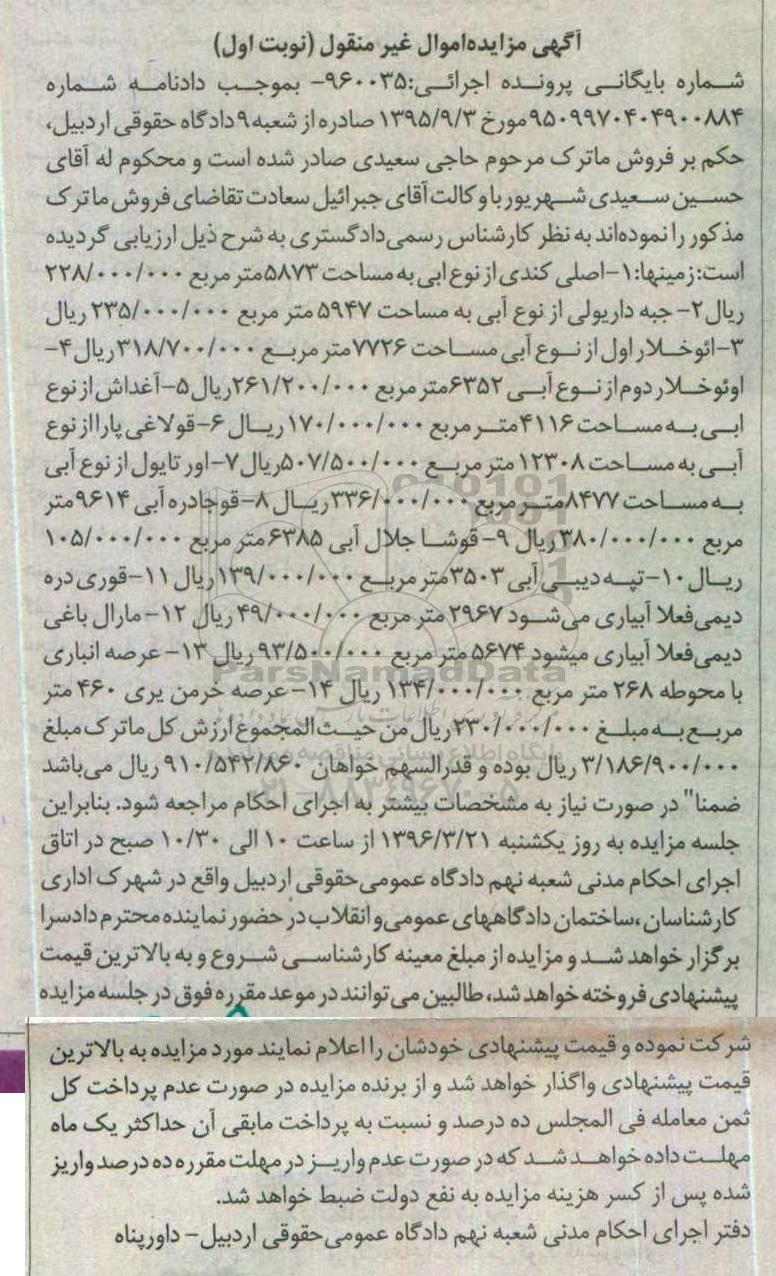 آگهی مزایده‌اموال غیر منقول (نوبت اول)
شماره بایگانی پرونده اجرائی:۹۶۰۰۳۵- بموجب دادنامه شماره
۹۵۰۹۹۷۰۴۰۴۹۰۰۸۸۴ مورخ ۱۳۹۵/۹/۳ صادره از شعبه ۹ دادگاه حقوقی اردبیل،
حکم بر فروش ماترک مرحوم حاجی سعیدی صادر شده است و محکوم له آقای
حسین سعیدی شهریور با وکالت آقای جبرائیل سعادت تقاضای فروش ماترک
مذکور را نموده‌اند به نظر کارشناس رسمی‌دادگستری به شرح ذیل ارزیابی گردیده
است: زمینها: ۱-اصلی کندی از نوع ابی به مساحت ۵۸۷۳متر مربع ۲۲۸/۰۰۰/۰۰۰
ریال ۲- جبه داریولی از نوع آبی به مساحت ۵۹۴۷ متر مربع ۲۳۵/۰۰۰/۰۰۰ ریال
۳-ائوخلار اول از نوع آبی مساحت ۷۷۲۶متر مربع ۳۱۸/۷۰۰/۰۰۰ریال ۴-
اوئوخلار دوم از نوع آبی ۶۳۵۲متر مربع ۲۶۱/۲۰۰/۰۰۰ریال ۵-آغداش از نوع
ابی به مساحت ۴۱۱۶متر مربع ۱۷۰/۰۰۰/۰۰۰ ریال ۶-قولاغی پاراا از نوع
آبی به مساحت ۱۲۳۰۸ متر مربع ۵۰۷/۵۰۰/۰۰۰ریال ۷-اور تایول از نوع آبی
به مساحت ۸۴۷۷متر مربع ۳۳۶/۰۰۰/۰۰۰ ریال ۸-قوجادره آبی ۹۶۱۴متر
مربع ۳۸۰/۰۰۰/۰۰۰ریال ۹- قوشا جلال آبی ۶۳۸۵متر مربع ۱۰۵/۰۰۰/۰۰۰
ریال ۱۰-تپه دیبی آبی ۳۵۰۳متر مربع ۱۳۹/۰۰۰/۰۰۰ریال ۱۱-قوری دره
دیمی‌فعلا آبیاری می‌شود ۲۹۶۷ متر مربع ۴۹/۰۰۰/۰۰۰ ریال ۱۲-مارال باغی
دیمی‌فعلا آبیاری میشود ۵۶۷۴ متر مربع ۹۳/۵۰۰/۰۰۰ ریال ۱۳- عرصه انباری
با محوطه ۲۶۸ متر مربع ۱۳۴/۰۰۰/۰۰۰ ریال ۱۴-عرصه خرمن یری ۴۶۰ متر
مربع به مبلغ ۲۳۰/۰۰۰/۰۰۰ریال من حیث المجموع ارزش کل ماترک مبلغ
۳/۱۸۶/۹۰۰/۰۰۰ ریال بوده و قدرالسهم خواهان ۹۱۰/۵۴۲/۸۶۰ ریال می‌باشد
ضمنا" در صورت نیاز به مشخصات بیشتر به اجرای احکام مراجعه شود. بنابراین
جلسه مزایده به روز یکشنبه ۱۳۹۶/۳/۲۱ از ساعت ۱۰ الی ۱۰/۳۰ صبح در اتاق
اجرای احکام مدنی شعبه نهم دادگاه عمومی‌حقوقی اردبیل واقع در شهرک اداری
کارشناسان ،ساختمان دادگاههای عمومی‌و انقلاب در حضور نماینده محترم دادسرا
برگزار خواهد شد و مزایده از مبلغ معینه کارشناسی شروع و به بالاترین قیمت
پیشنهادی فروخته خواهد شد، طالبین می‌توانند در موعد مقرره فوق در جلسه مزایده
شرکت نموده و قیمت پیشنهادی خودشان را اعلام نمایند مورد مزایده به بالاترین
قیمت پیشنهادی واگذار خواهد شد و از برنده مزایده در صورت عدم پرداخت کل
ثمن معامله فی المجلس ده درصد و نسبت به پرداخت مابقی آن حداکثر یک ماه
مهلت داده خواهد شد که در صورت عدم واریز در مهلت مقرره ده درصد واریز
شده پس از کسر هزینه مزایده به نفع دولت ضبط خواهد شد.
دفتر اجرای احکام مدنی شعبه نهم دادگاه عمومی‌حقوقی اردبیل- داورپناه
ParsNamadData